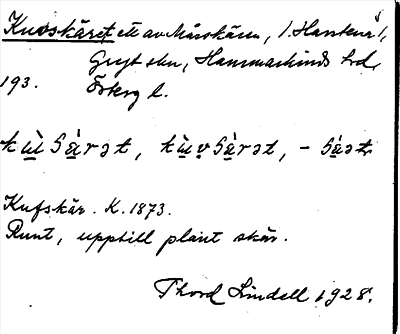 Kuvskäret ett av Måsskären, /. Harstena /,
Gryt skn, Hammarkinds hd,
193. Österg l.
kùSärət, kùvSärət, - Säst
Kufskär. K. 1873.
Runt, upptill plant skär.
Thord Lindell 1928.